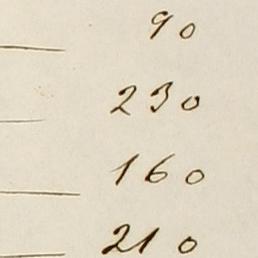 90
230
160
210